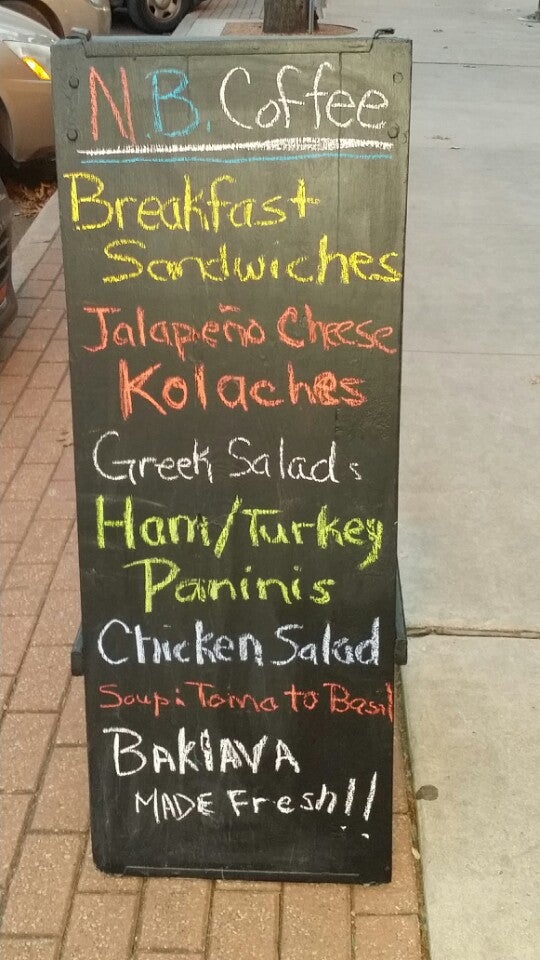 N.B. Coffee
Breakfast
Sandwiches
Jalapeño Cheese
Kolaches
Greek Salads
Ham/Turkey
Paninis
Chicken Salad
Soup: Tomato Basil
BAKlAVA
MADE Fresh!!